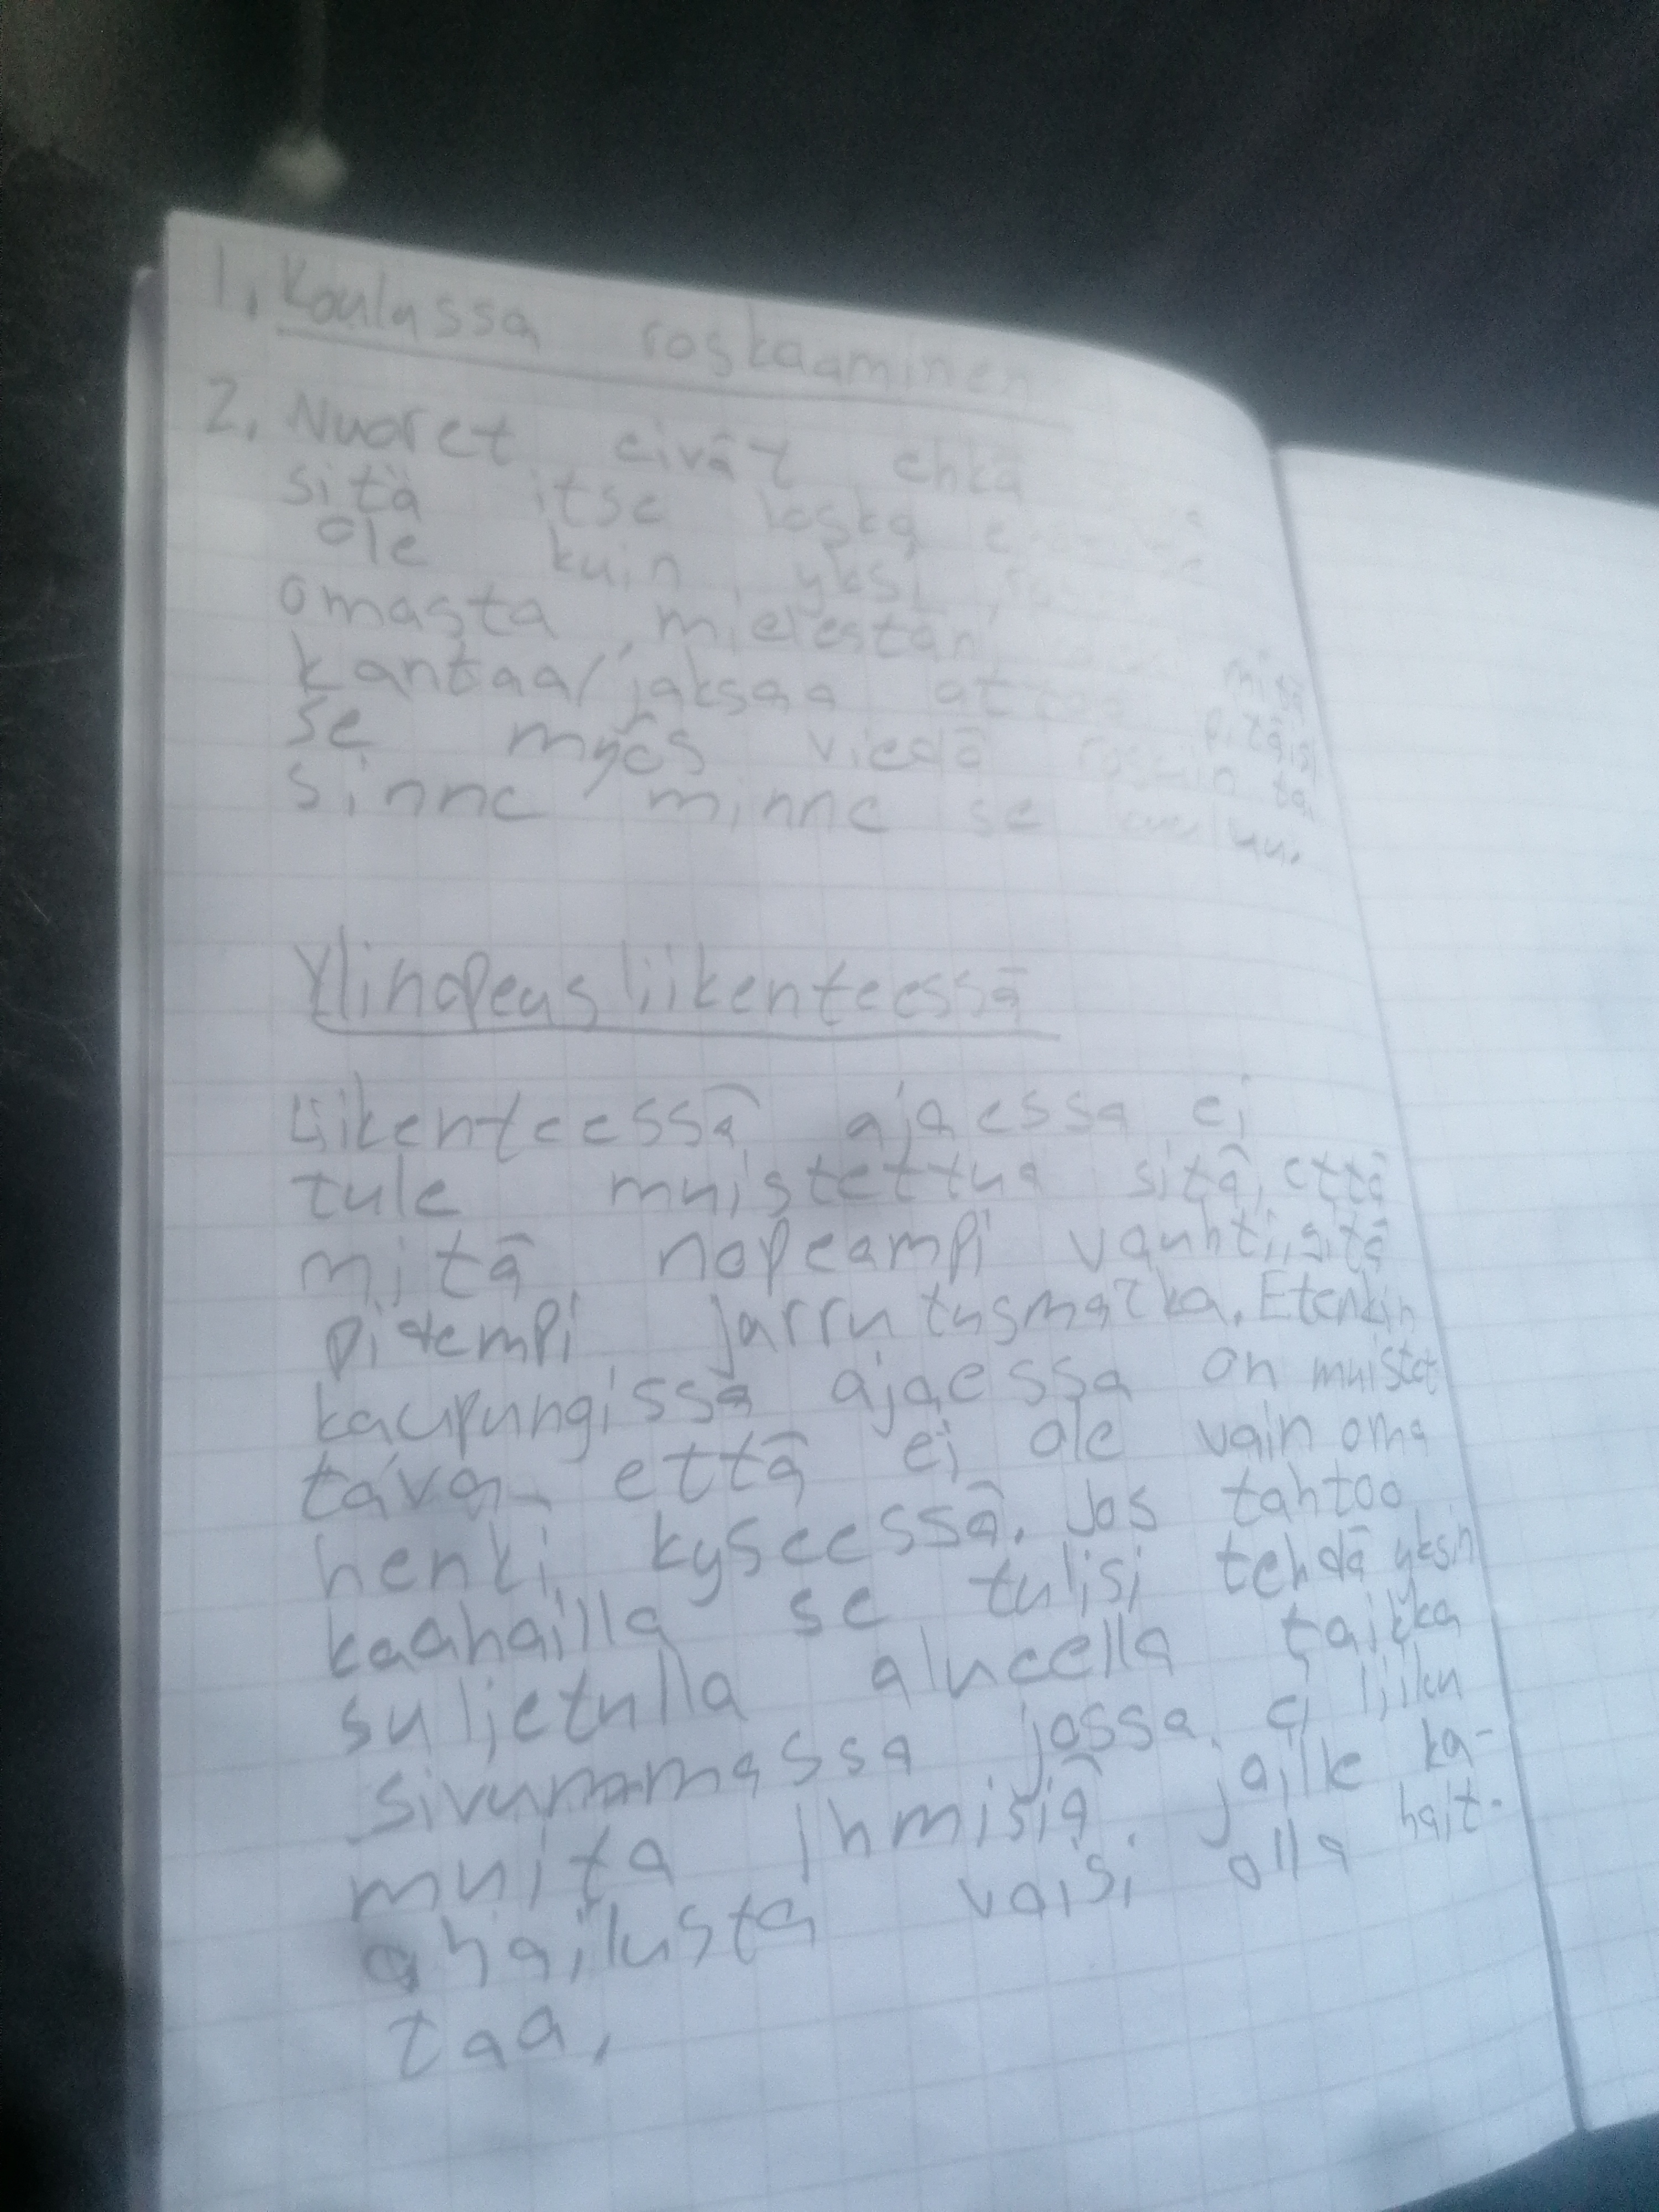 1. Koulussa roskaaminen
2. Nuoret eivät ehkä
sitä itse koska
ole kuin yksi
omasta mielestän
kantaa/jaksaa ot mitä
se myös viedä roskiin tai
sinne minne se
Ylinopeus liikenteessä
Liikenteessä ajaessa ei
tule muistettua sitä, että
mitä nopeampi vauhti, sitä
pidempi jarrutusmatka. Etenkin
kaupungissa ajaessa on muistet
tava että ei ole vain oma
henki kyseessä. Jos tahtoo
kaahailla se tulisi tehdä yksin
suljetulla alueella taikka
sivummassa jossa ei liiku
muita ihmisiä, jolle ka-
ahailusta voisi olla hait-
taa.